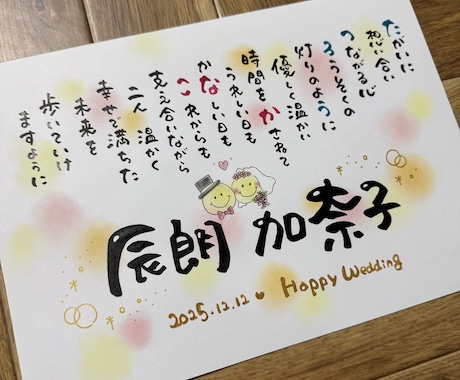 たがいに
想い合い
つながる心
ろうそくの
灯りのように
優しく温かい
時間をかさねて
うれしい日も
かなしい日も
これからも
支え合いながら
二人 温かく
幸せで満ちた
未来を
歩いていけ
ますように
辰朗 加奈子
2025.12.12 Happy Wedding